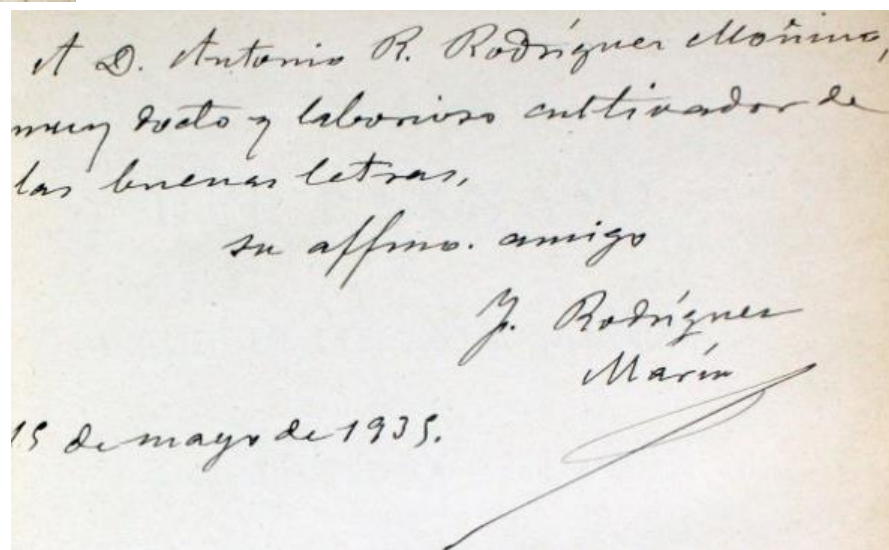 A D. Antonio R. Rodríguez Moñino,
muy docto y laborioso cultivador de
las buenas letras,
su affmo. amigo
F. Rodríguez
Marín
15 de mayo de 1935.